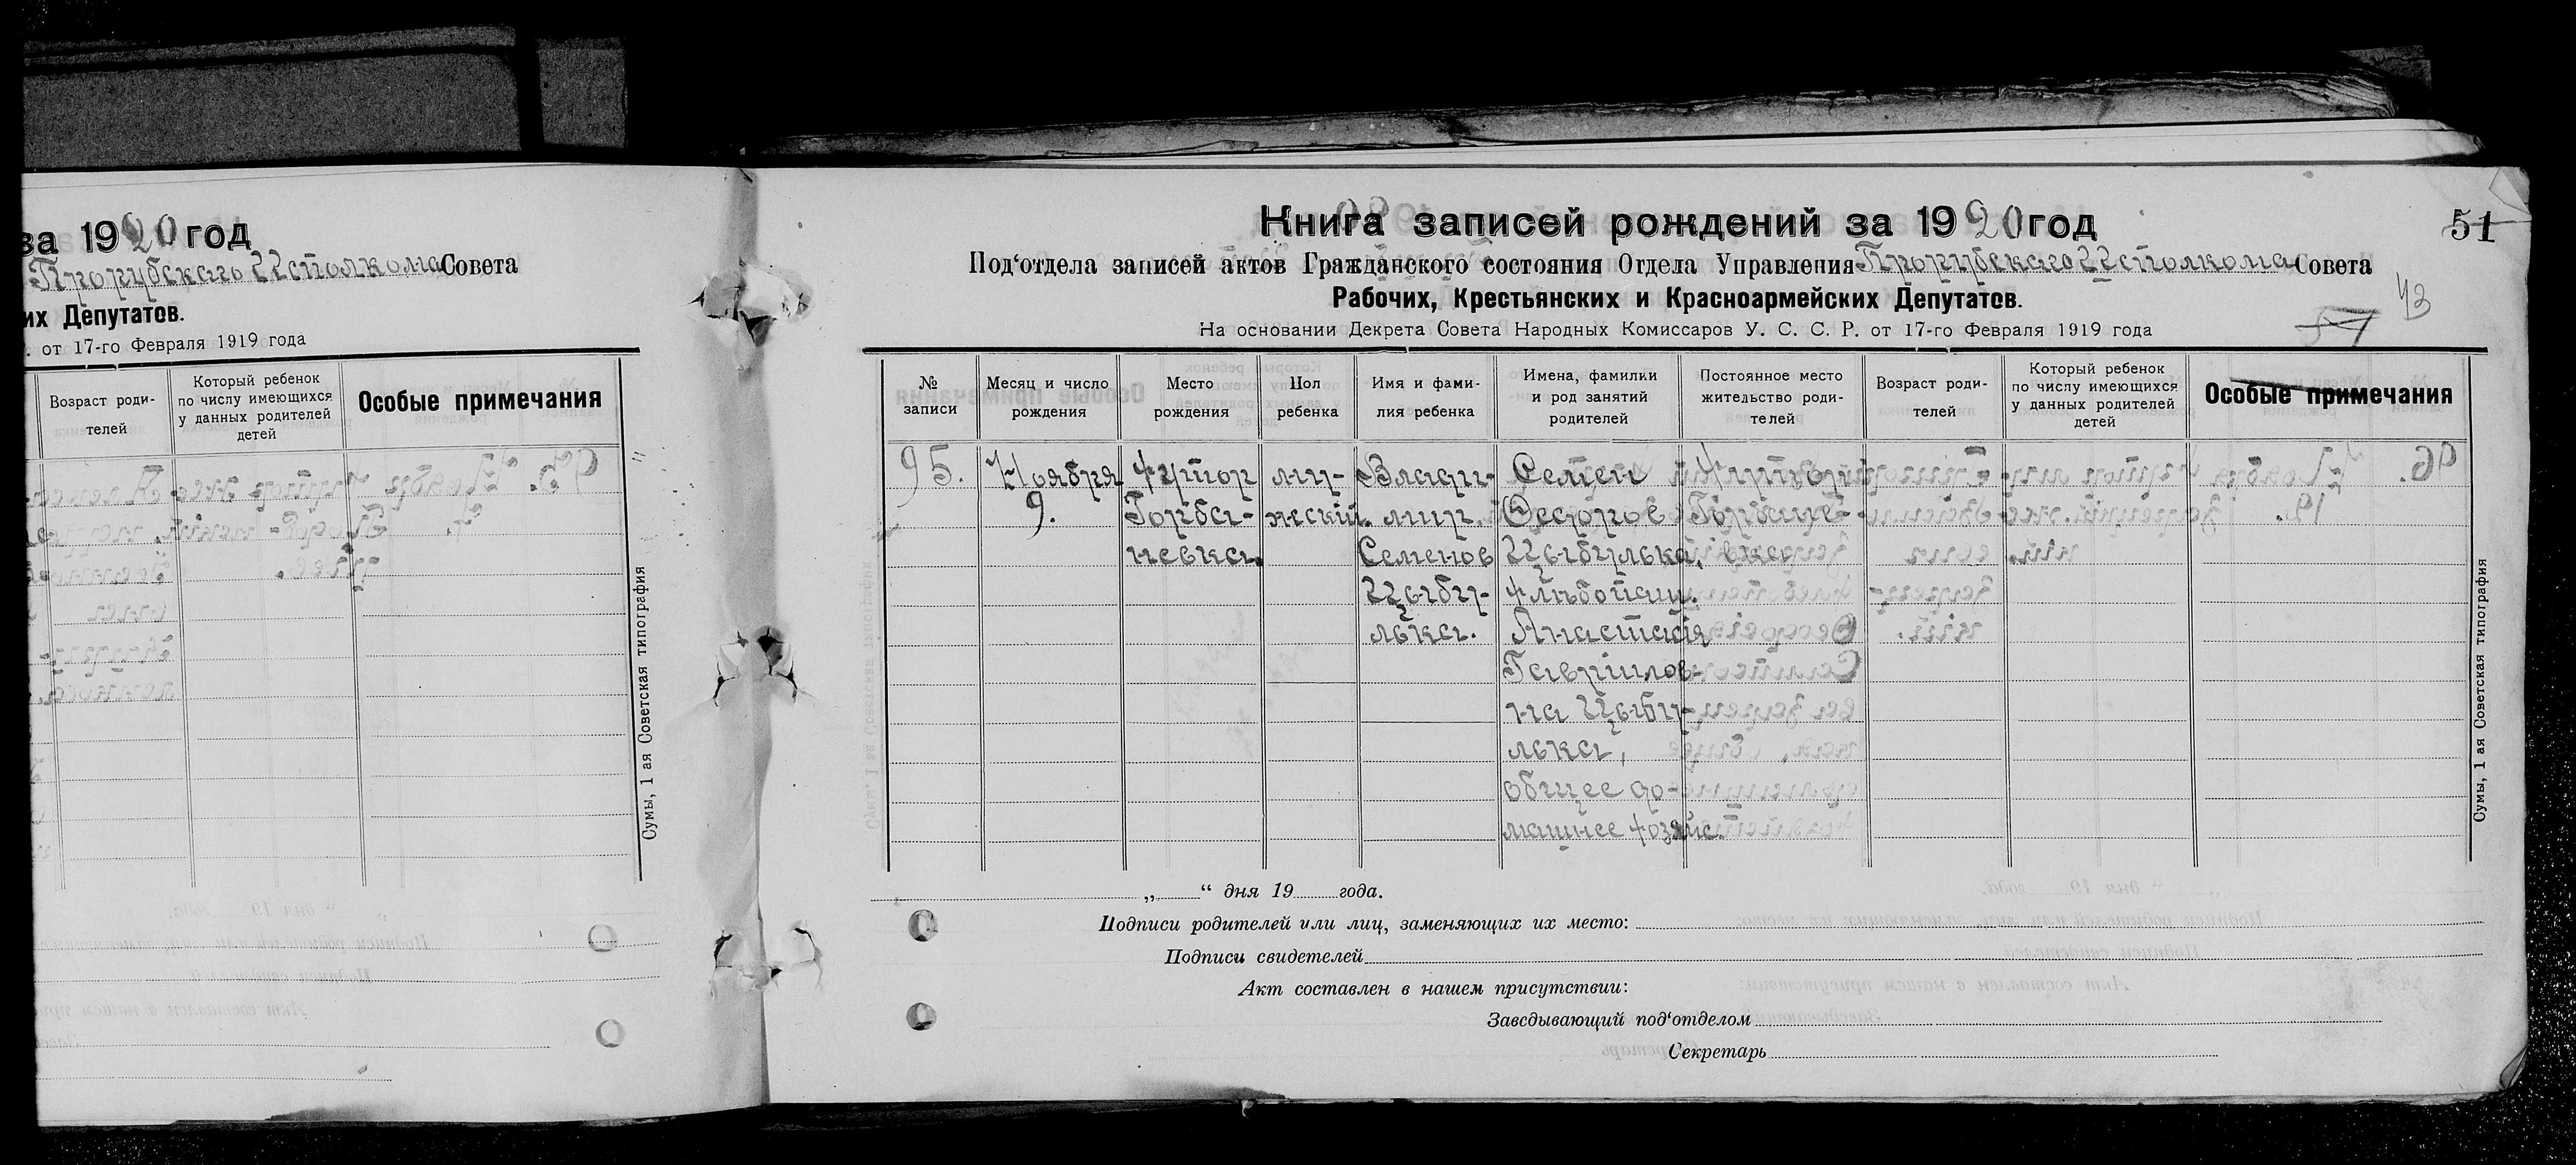 за 1920 год
Прорубскаго Исполкома Совета
их Депутатов.
. от 17-го Февраля 1919 года
Возраст роди-
телей
Который ребенок
по числу имеющихся
у данных родителей
детей
Особые примечания
Сумы, 1 ая Советская типография
51
Книга записей рождений за 1920 год
Под‘отдела записей актов Гражданского состояния Отдела Управления Прорубскаго Исполкома Совета
Рабочих, Крестьянских и Красноармейских Депутатов.
43
На основании Декрета Совета Народных Комиссаров У. С. С. Р. от 17-го Февраля 1919 года
№
записи
Месяц и число
рождения
Место
рождения
Пол
ребенка
Имя и фами-
лия ребенка
Имена, фамилии
и род занятий
родителей
Постоянное место
жительство роди-
телей
Возраст роди-
телей
Который ребенок
по числу имеющихся
у данных родителей
детей
Особые примечания
95.
Ноября
9.
Хутор
Горба-
невка.
му-
жеский.
Влади-
мир
Семенов
Цыбу-
лька.
Семен
Федоров
Цыбулька,
хлѣбопаш.
Анастасія
Гаврилов-
на Цыбу-
лька,
общее до-
машнее хозяйс.
Хутор
Горбане-
вка
Сумы, 1 ая Советская типография
„ “ дня 19 года.
Подписи родителей или лиц, заменяющих их место:
Подписи свидетелей
Акт составлен в нашем присутствии:
Заведывающий под‘отделом
Секретарь